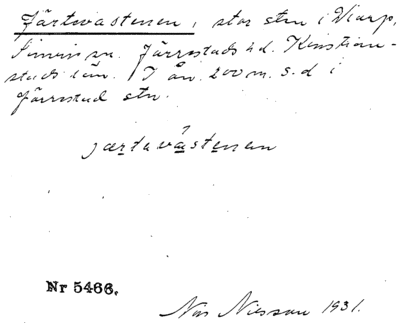 Järtwastenen, stor sten i Wiarp,
Simris sn. Järrestads hd. Kristian-
stads län. I ån. 200 m. s.d i
Järrestad stn.
jærtavåstenen
Nr 5466.
Nils Nilsson 1931.